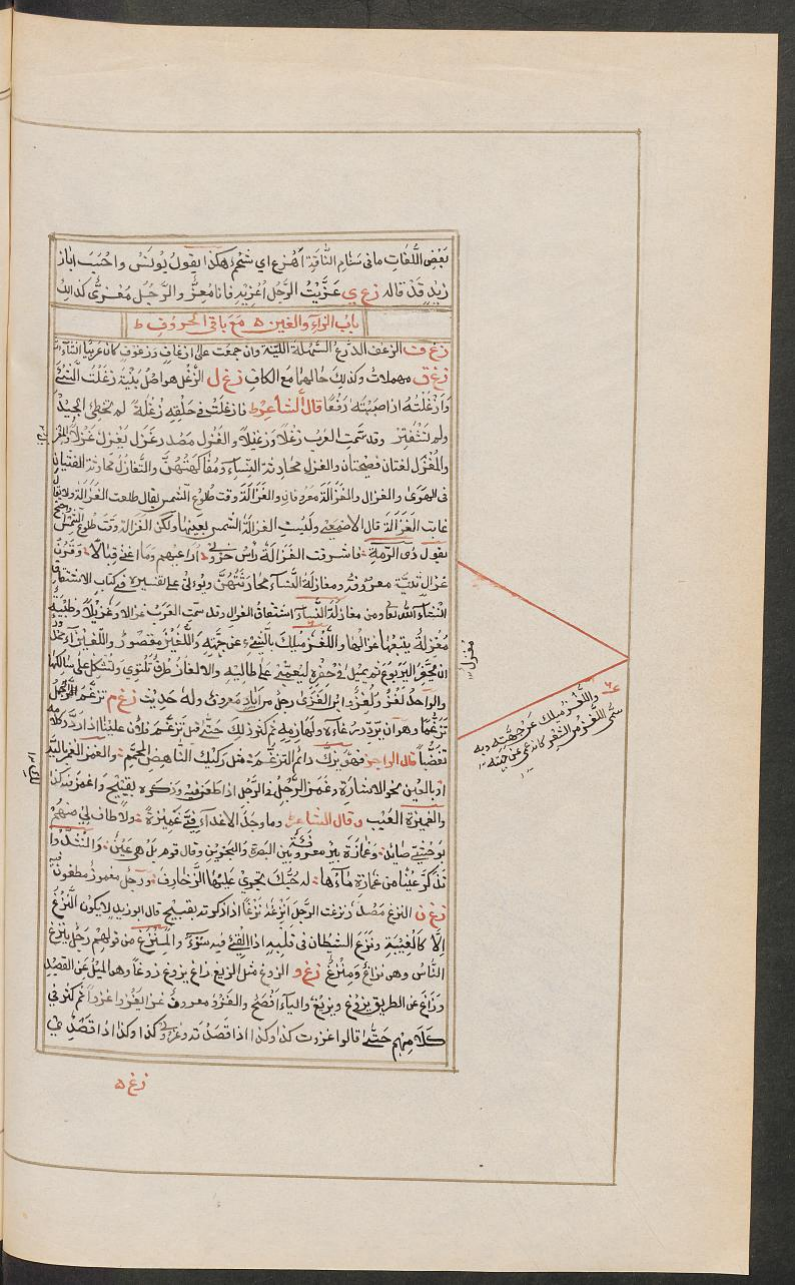 بَعْضِ اللُّغَاتِ مافى سَنَامِ النَّاقَةِ اَهْزَع اى شحْم هكذا يقولُ يُونُسُ واحْسَبَ ابَاز
زيدٍ قَدْ قاله زع ي عَزَّيْتُ الرَّجُلَ اُعَزِّيه فانا مُعَزٍّ والرَّجُلُ مُعَزًّى كذلك
باب الزاء والغين ٥ مَعَ باقى الحروفِ ط
زغ ف الزغف الدرع السَّهْلة الليّنة وان جمعت على ازغافٍ وزغوفٍ كان عربيا
زغ ق مهملات وكذلك حالهما مع الكاف زغ ل الزَّغْل هو اصل بنية زَغَلْتُ الشَّىْءَ
وَاَزْغَلْتُه اذا صبَبْتَه دَفْعًا قال الشاعر ط فازغلَتْ فى حَلْقِه زُغْلَةً لم تخطئ الجيدَ
ولم تَشْفَتِرّ وقد سَمَّت العرب زُغْلًا وزُغَيْلًا والغَزْل مصدر غزل يغزل غَزْلاً
والمُغْزَل لغتان فصيحتان والغزل محادثة النِّساء ومُفاكَهَتُهُنَّ والتَّغازل محادثة الفتيان
فى الهوى والغزال والغَزَالَة معروفان والغَزَالَة وقت طلوع الشمس يقال طلعت الغزالة ولا يقال
غابت الغَزَالَة قال الاصمعى وليست الغزالة الشمس بعينها ولكن الغزالة وقت طلوع الشمس
بقول ذى الرمة فاشرفت الغزالة راسَ حزوى اُراعيهم وما اغنى قِبالا وقرن
غزالٍ ثنيّة معروفة ومغازلة النساء محادثتُهُنَّ وبُولَى على تفسيره فى كتاب الاشتقاق
ان شاء الله تعالى ومن مغازلة النِّساء اشتقاق الغزال وقد سمت العرب غزالا وغُزَيْلًا وظبية
مُغْزِلَةٌ يتبعها غزالها واللَّغْز مَيلك بالشىء عن جهته واللُّغَّيْز مقصور واللغيزاء
ان يحفر اليربوع ثم يميل فى حفره ليُعمّى على طالبه والالغاز طرق تلتوى وتُشكِل على سالكها
والواحد لغز ولُغَز وابن الغَزّ رجل من اياد معروف وله حديث زغ م تزغم الجمل
تزغُّمًا وهو ان يردد رغاءه فى لهازمه ثم كثر ذلك حتى قيل تزغّم فلان علينا اذا ردد كلامه
تغضُّبًا قال الراجز فهو يزك دائم التزغُّم مثل زكيك الناهض المحمّم والغمز الغمز باليد
او بالعين نحو الاشارة وغمز الرجل فى الرجل اذا طعن فيه وذكره بقبيح واغمز فيه كذا
والغميزة العَيْب وقال الشاعر وما وجد الاعداء فىّ غميزةً ولا طاف لى منهم
بوحشى صائد وغُمازَة بئر معروفة بين البصرة والبحرين وقال قوم بل هى عَيْن وانشدوا
تذكّر عينا من غُمازة ماؤها له حُبُك تجرى عليها الزخارف ورجل مغموز مطعون فيه
زغ ن النزغ مصدر نزغت الرجل انزغه نزغًا اذا ذكرته بقبيح قال ابو زيد لا يكون النزغ
الا كالغِيبة ونزغ الشيطان فى قلبه اذا القى فيه سوءًا والمِنْزَغ من قولهم رجل ينزغ
الناس وهو نزّاغ ومِنْزَغ زغ و الزوغ مثل الزيغ زاغ يزوغ زوغًا وهو الميل عن القصد
وزاغ عن الطريق يزوغ ويزيغ والياء افصح والغزو معروف غزا يغزو غزوًا ثم كثر فى
كلامهم حتى قالوا غزوت كذا وكذا اذا قصدته وغزوى كذا وكذا اذا قصدى
مغزل
واللغز ميلك عن جهته وبه
سمى اللغز من الشعر كانه عمى عن جهته
زغ ٥